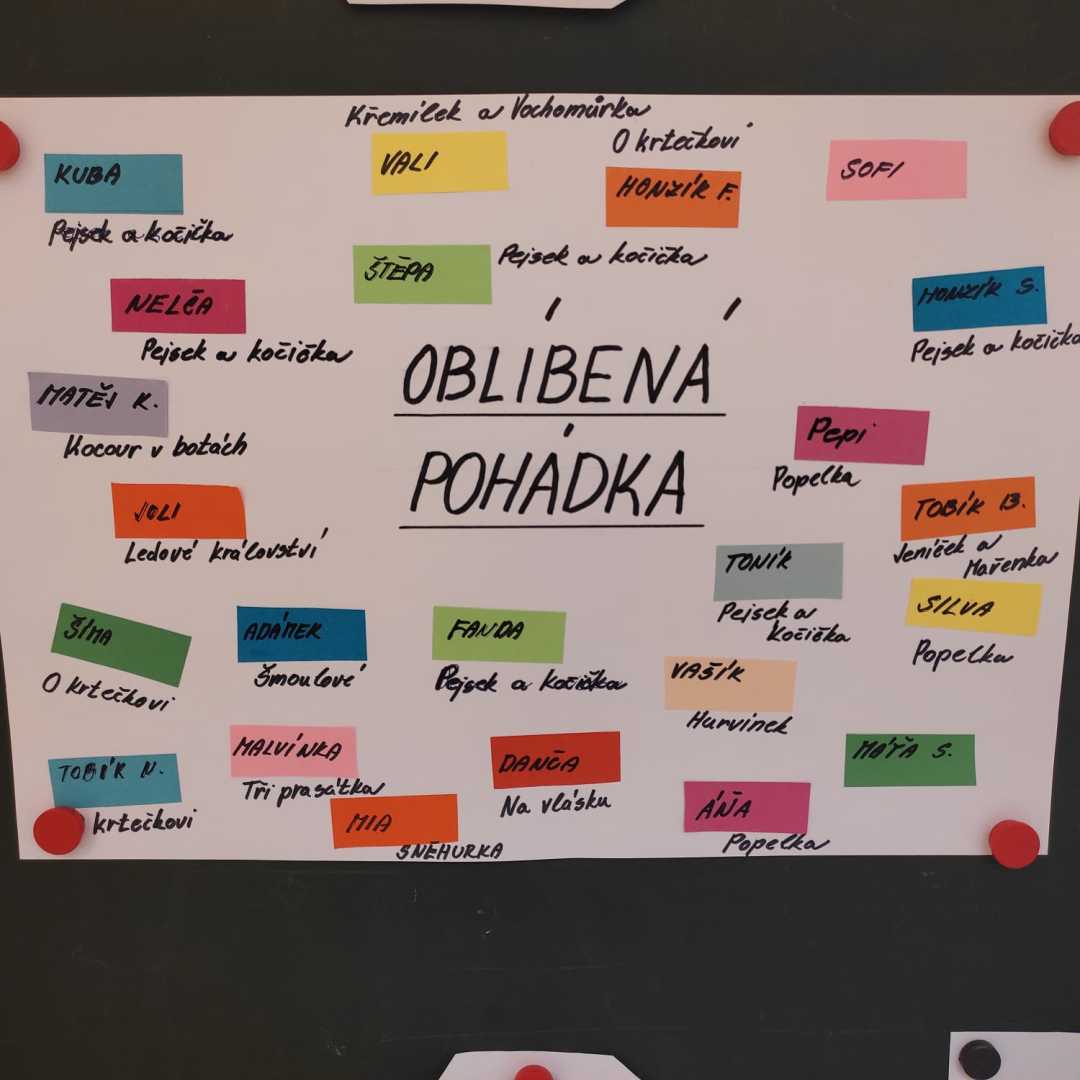 Křemílek a Vochomůrka
VALI
O krtečkovi
HONZÍK F.
SOFI
KUBA
Pejsek a kočička
ŠTĚPA
Pejsek a kočička
NELČA
Pejsek a kočička
HONZÍK S.
Pejsek a kočička
OBLÍBENÁ
POHÁDKA
MATĚJ K.
Kocour v botách
Pepi
Popelka
JOLI
Ledové království
TOBÍK B.
Jeníček a
Mařenka
TONÍK
Pejsek a
kočička
SILVA
Popelka
ŠÍMA
O krtečkovi
ADÁMEK
Šmoulové
FANDA
Pejsek a kočička
VAŠÍK
Hurvínek
MALVÍNKA
Tři prasátka
DANČA
Na vlásku
MÁŤA S.
TOBÍK N.
krtečkovi
MIA
SNĚHURKA
ÁŇA
Popelka